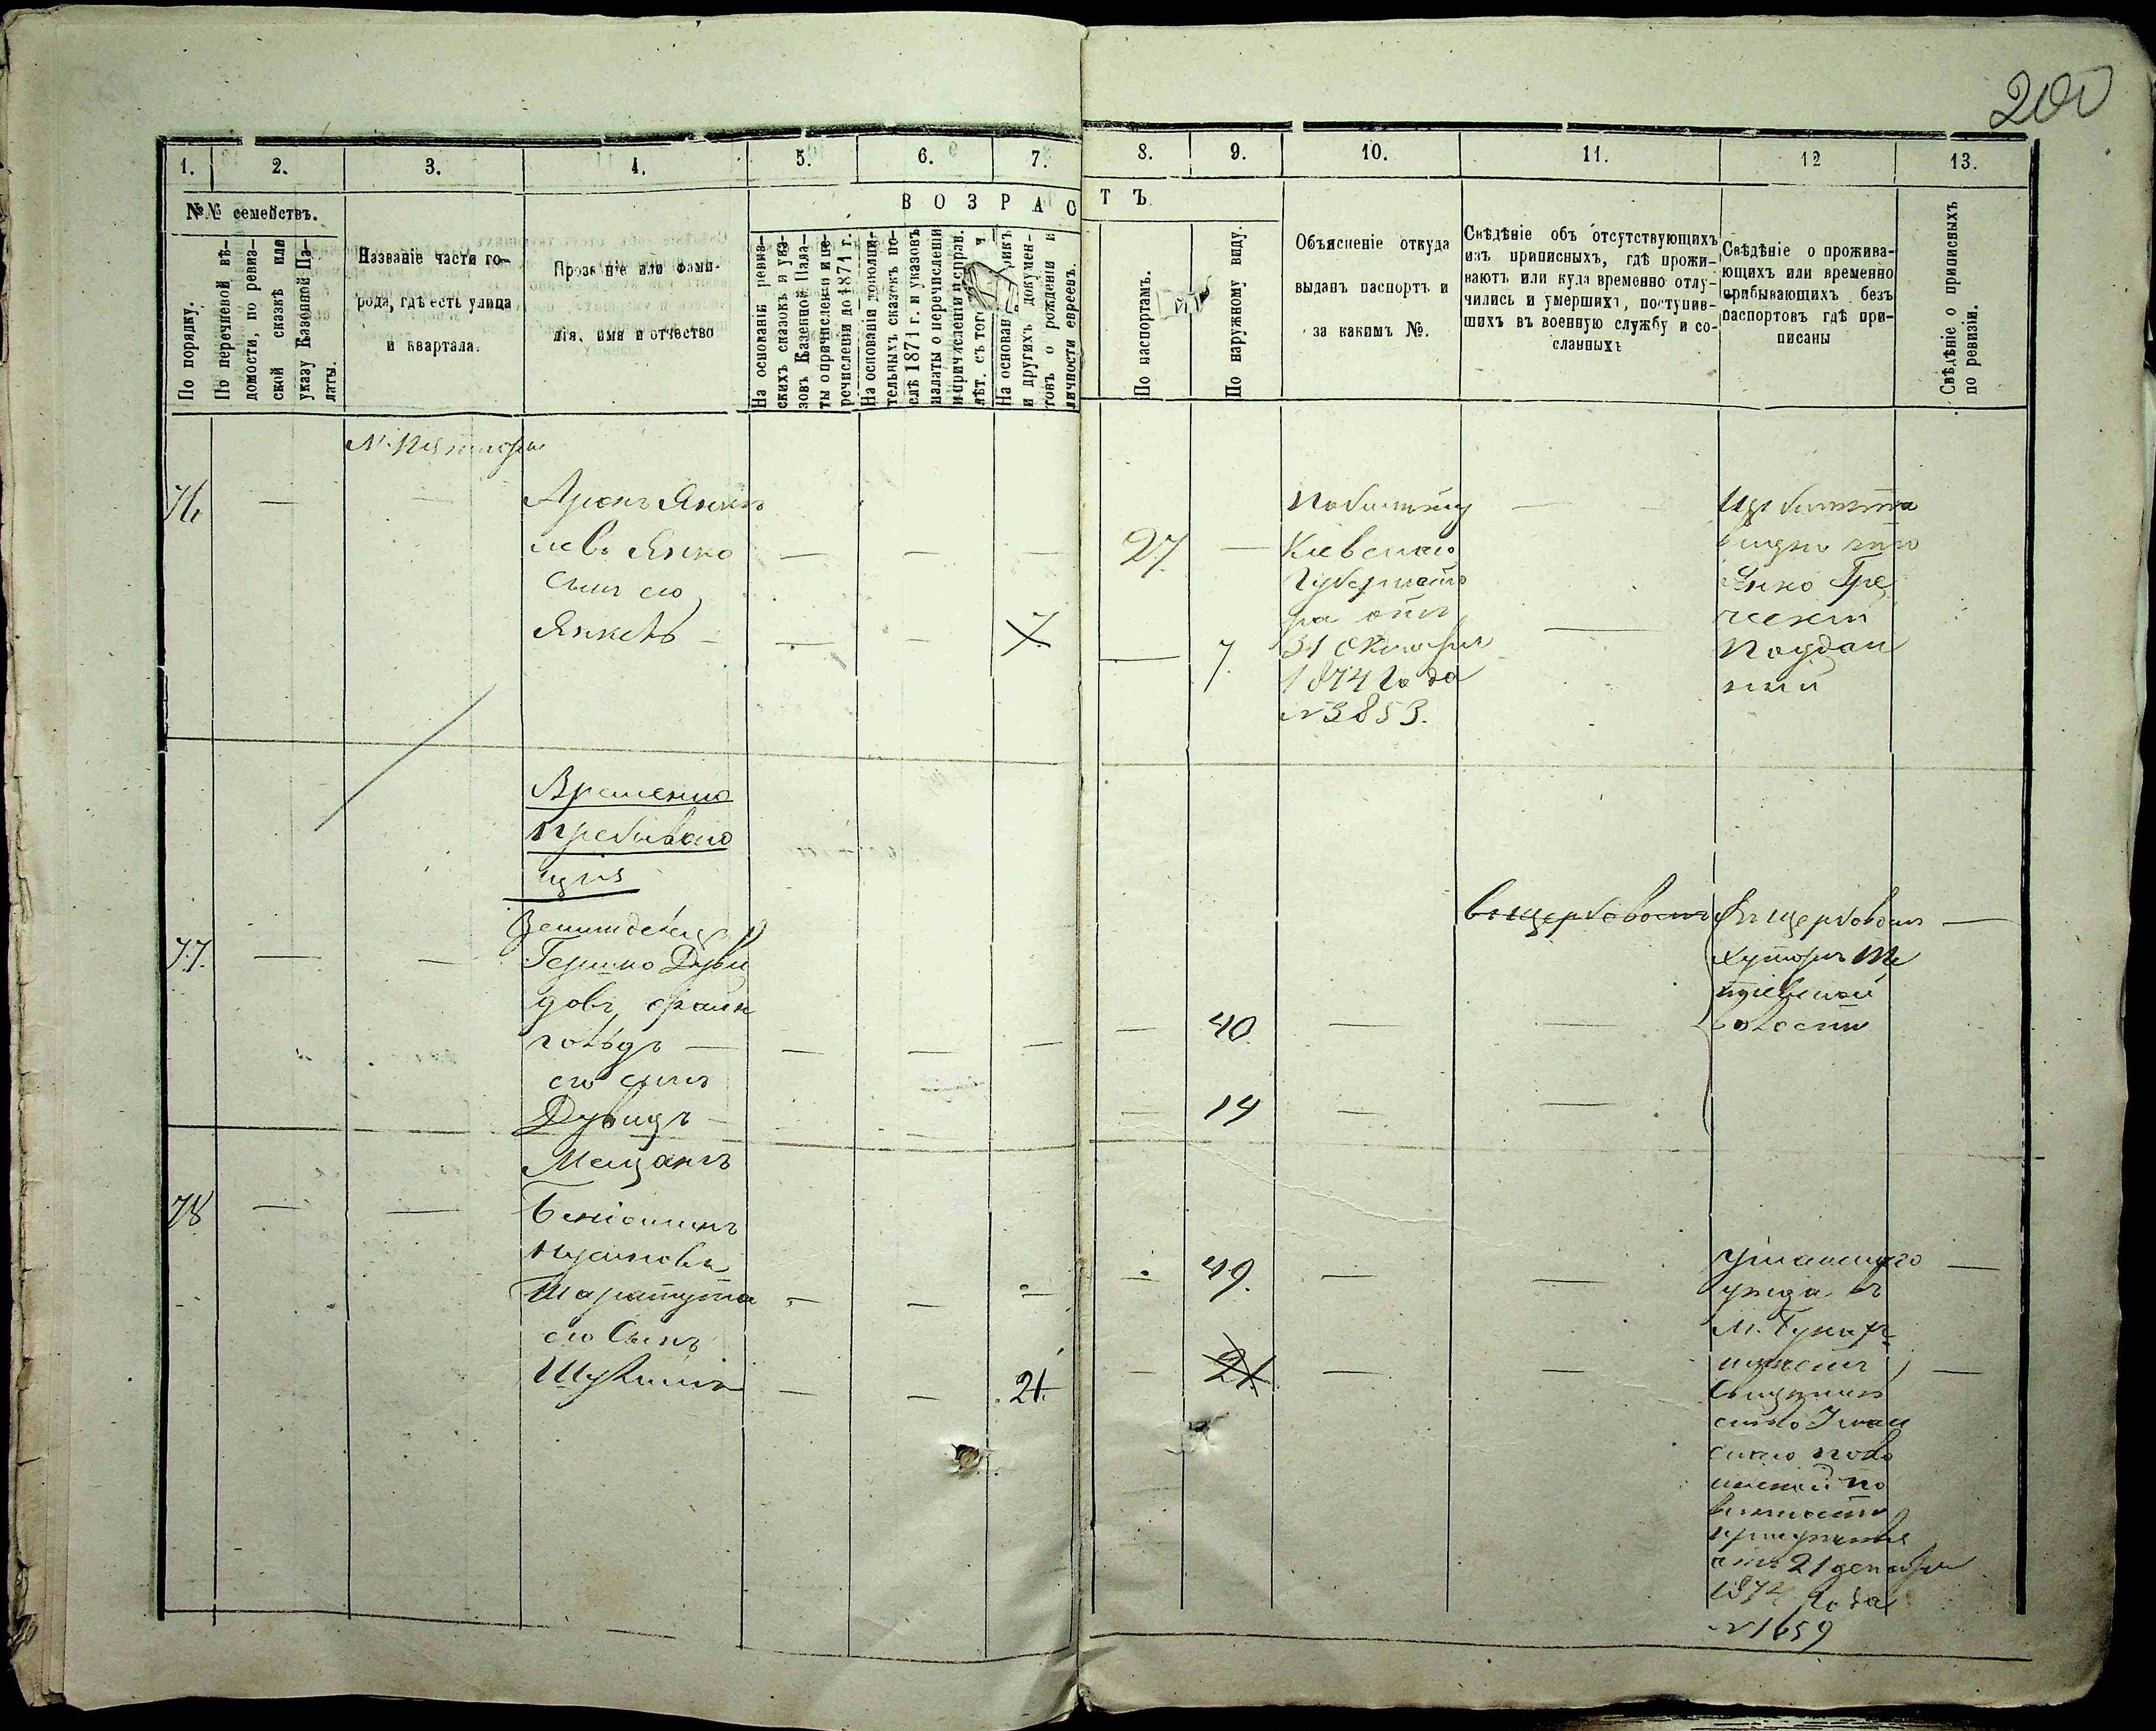 200
1.
2.
3.
4.
5.
6.
7.
8.
9.
10.
11.
12
13.
№№ семействъ.
В О З Р А С
Т Ъ.
По порядку.
По перечневой вѣ-
домости, по ревиз-
ской сказкѣ или
указу Казенной Па-
латы.
Названіе части го-
рода, гдѣ есть улица
и квартала.
Прозваніе или фами-
лія, имя и отчество
На основаніи ревиз-
скихъ сказокъ и ука-
зовъ Казенной Пала-
ты о причисленіи и пе-
речисленіи до 1871 г.
На основаніи дополни-
тельныхъ сказокъ по-
слѣ 1871 г. и указовъ
палаты о перечисленіи
и причисленіи исправн.
лѣт. съ того
На основан
и другихъ докумен-
товъ о рожденіи и
личности евреевъ.
По паспортамъ.
По наружному виду.
Объясненіе откуда
выданъ паспортъ и
за какимъ №.
Свѣдѣніе объ отсутствующихъ
изъ приписныхъ, гдѣ прожи-
ваютъ или куда временно отлу-
чились и умершихъ, поступив-
шихъ въ военную службу и со-
сланныхъ
Свѣдѣніе о прожива-
ющихъ или временно
прибывающихъ безъ
паспортовъ гдѣ при-
писаны
Свѣдѣніе о приписныхъ
по ревизіи.
М. Пятигоры
76
Аронъ Янке
левъ Янко
сынъ его
Янкель
7
27
7
По билету
Кіевскаго
Губернато
ра отъ
31 Октября
1874 года
№ 3853.
Изъ билета
видно что
Янко Гре
ческій
Поддан
ный
Временно
пребываю
щія
77.
Гершко Дуви
довъ Фаин
гольдъ
его сынъ
Дувидъ
40
14
въ Щербовом
въ Щербовом
хуторѣ Те
тіевской
волости
78
Мещанъ
Беніоминъ
Нусиновъ
Шаратута
его Сынъ
21.
49.
21.
Уманскаго
уѣзда въ
М.
отъ 21 декабря
187 года
№ 1659